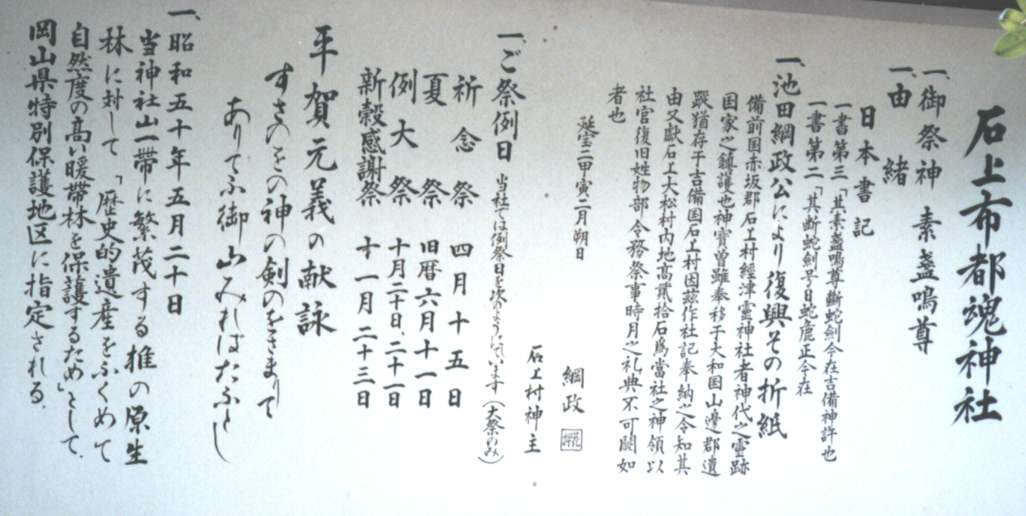 石上布都魂神社
一、御祭神 素盞鳴尊
一、由緒
日本書記
一書第三「其素盞鳴尊断蛇剣今在吉備神許也
一書第二「其断蛇剣号曰蛇麁正今在
一、池田綱政公により復興その折紙
備前国赤坂郡石上村経津霊神社者神代之霊跡
国家之鎮護也神宝曽雖奉移于大和国山邊郡遺
蹤猶存于吉備国石上村因茲作社記奉納之令知其
由又献石上大松村内地高貳拾石爲當社之神領以
社官復旧姓物部令務祭事時月之礼典不可闕如
者也
延宝二甲寅二月朔日
綱政
石上村神主
一、ご祭例日 当社では例祭日を次のようにしています(大祭のみ)
祈念祭 四月十五日
夏祭 旧暦六月十一日
例大祭 十月二十日、二十一日
新穀感謝祭 十一月二十三日
平賀元義の献詠
すさのをの神の剣のをさまりて
ありてふ御山みればたふとし
一、昭和五十年五月二十日
当神社山一帯に繁茂する椎の原生
林に対して「歴史的遺産をふくめて
自然度の高い暖帯林を保護するため」として、
岡山県特別保護地区に指定される.